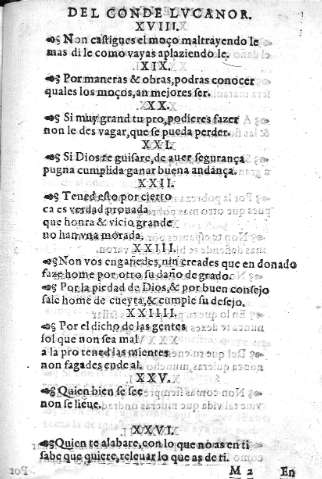 DEL CONDE LVCANOR.
XVIII.
Non castigues el moço maltrayendo le
mas di le como vayas aplaziendo le.
XIX.
Por maneras & obras, podras conocer
quales los moços, an mejores ser.
XX.
Si muy grand tu pro, podieres fazer
non le des vagar, que se pueda perder.
XXI.
Si Dios te guisare, de auer segurança
pugna cumplida ganar buena andança.
XXII.
Tened esto por cierto
ca es verdad prouada
que honra & vicio grande
no han vna morada.
XXIII.
Non vos engañedes, nin creades que en donado
faze home por otro su daño de grado.
Por la piedad de Dios, & por buen consejo
sale home de cueyta, & cumple su desejo.
XXIIII.
Por el dicho de las gentes
sol que non sea mal
a la pro tened las mientes
non fagades ende al.
XXV.
Quien bien se see
non se lieue.
XXVI.
Quien te alabare, con lo que no as en ti
sabe que quiere, releuar lo que as de ti.
M 2 En